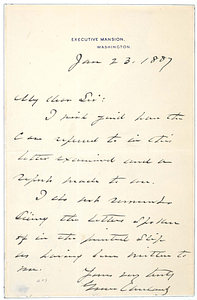 EXECUTIVE MANSION,
WASHINGTON.
Jan 23. 1887
My dear Sir:
I wish you'd have the
Case referred to in this
letter examined and a
report made to me.
I do not remember
seeing the letters spoken
of in the printed slip
as having been written to
me.
Yours very truly
Grover Cleveland